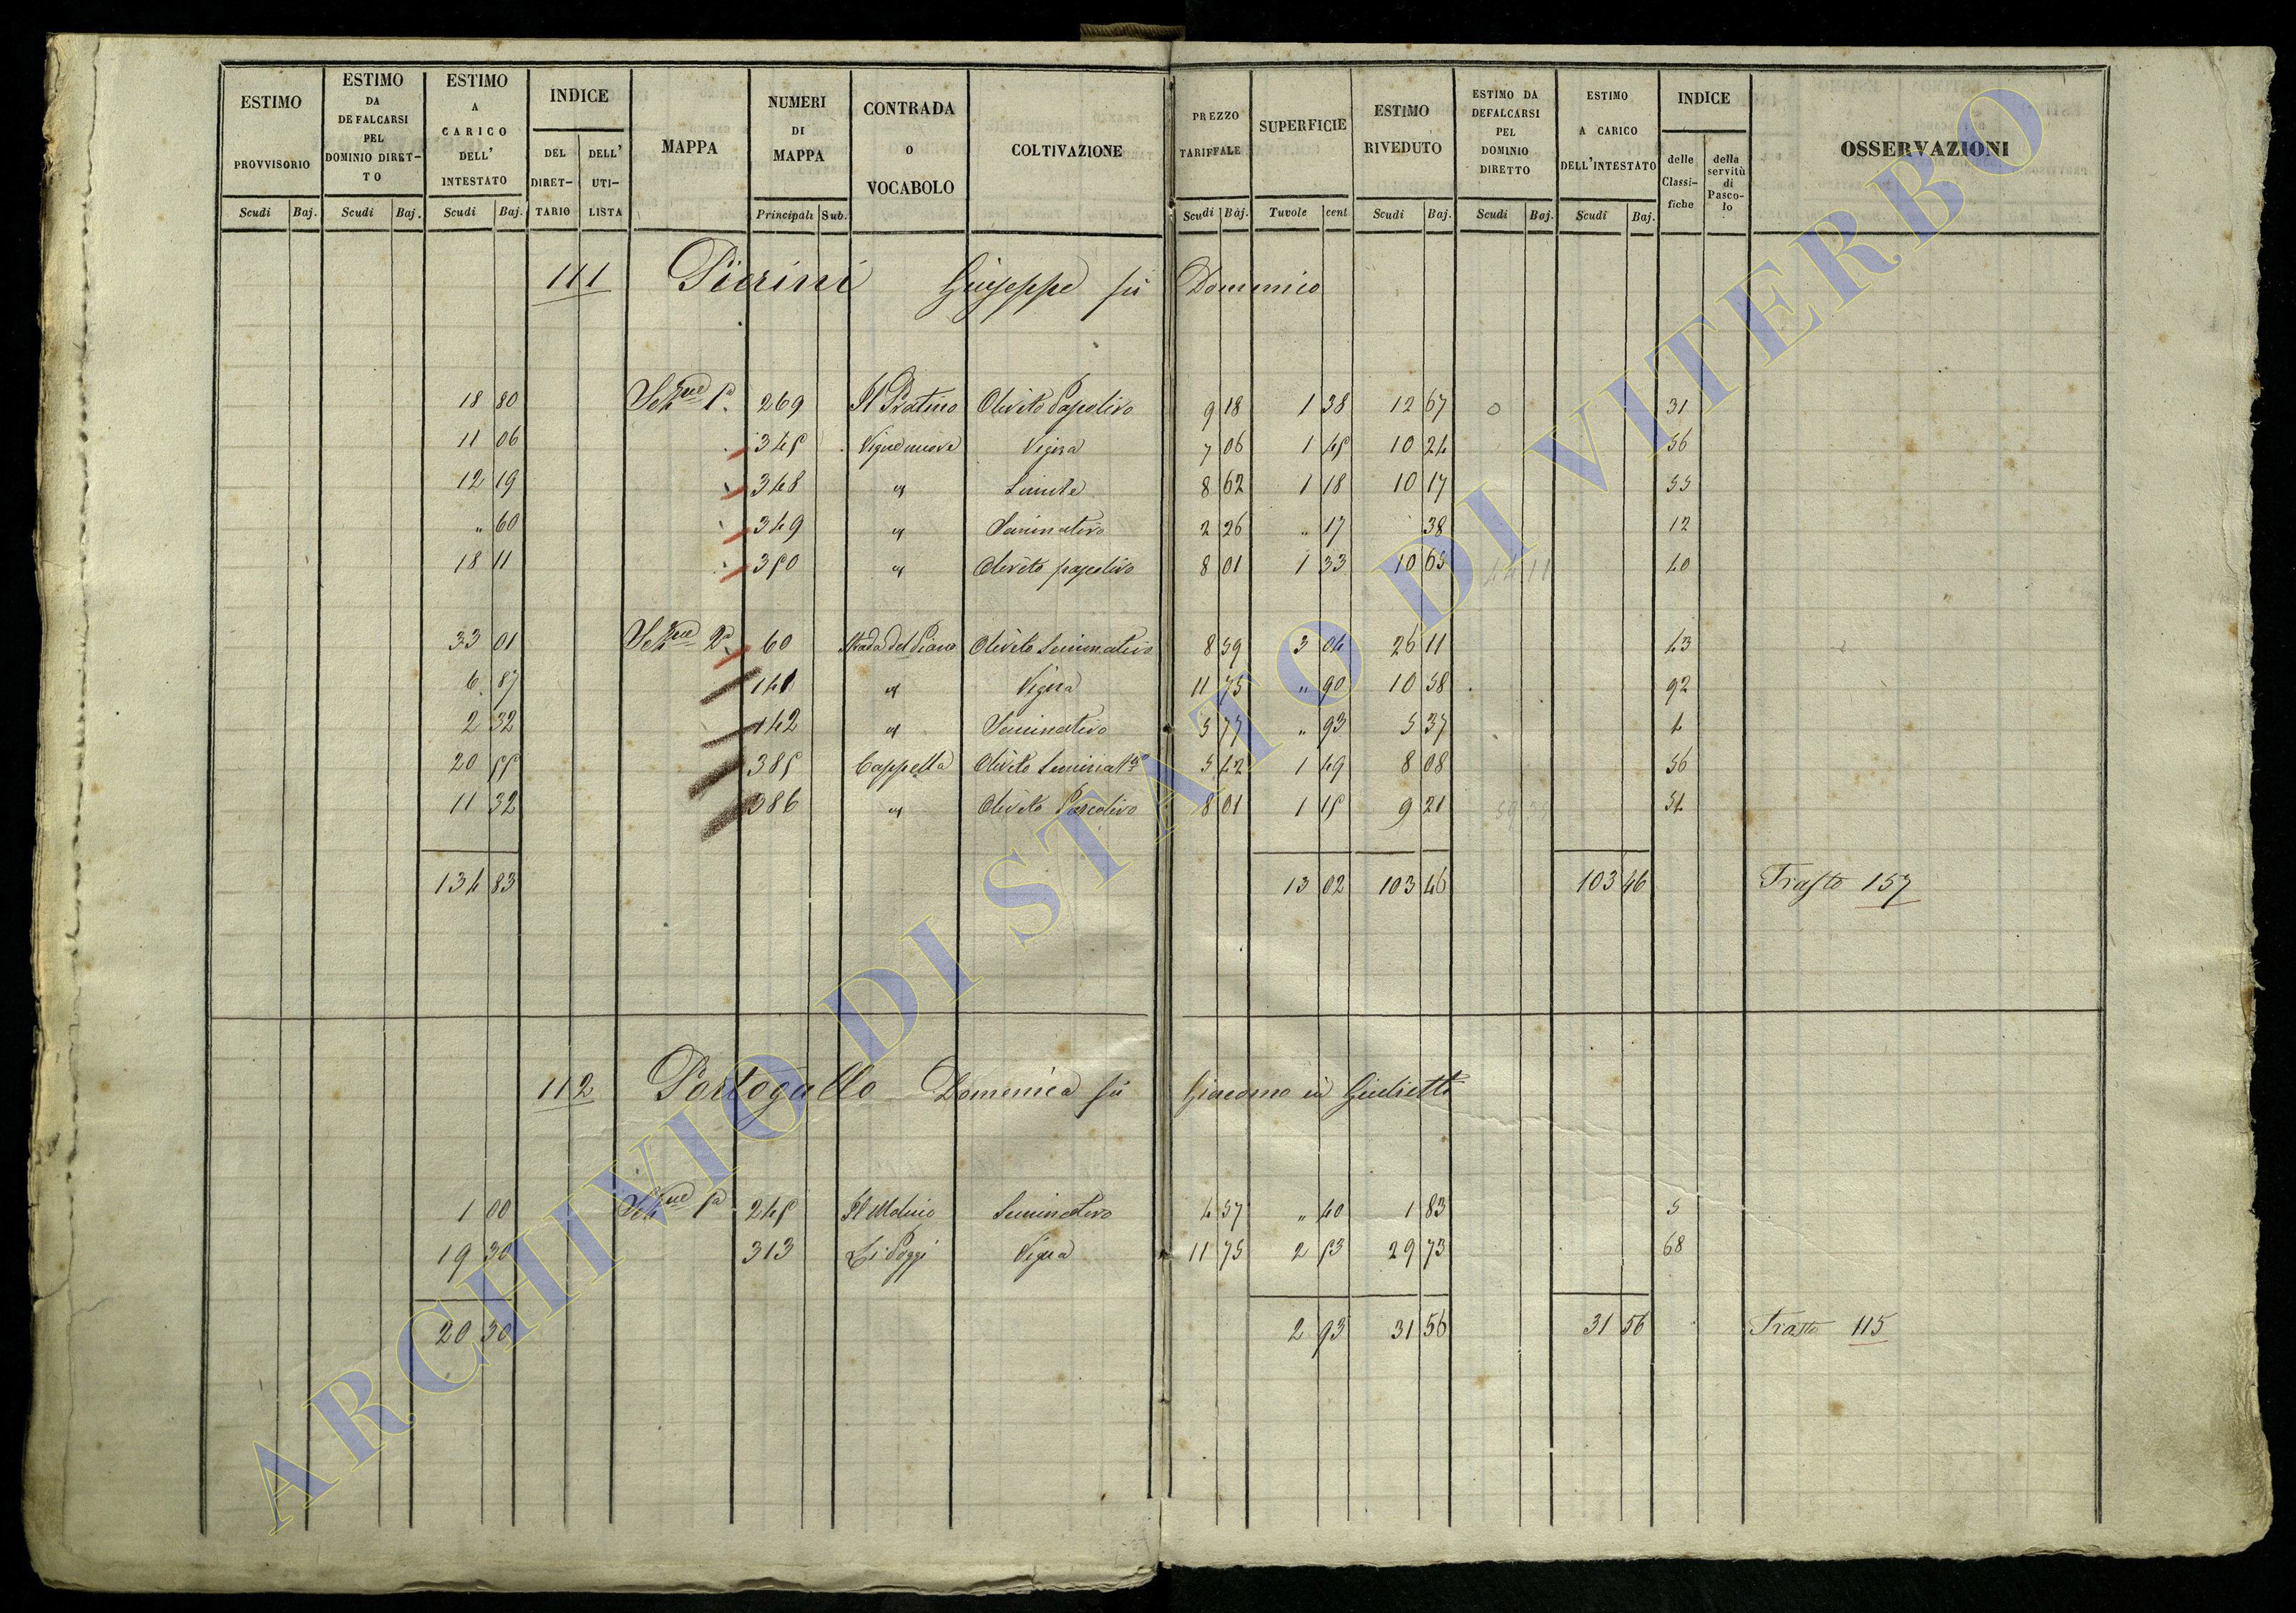 ESTIMO PROVVISORIO Scudi Baj.
ESTIMO DA DEFALCARSI PEL DOMINIO DIRETTO Scudi Baj.
ESTIMO A CARICO DELL' INTESTATO Scudi Baj.
INDICE DEL DIRETTARIO DELL' UTILISTA
MAPPA
NUMERI DI MAPPA Principali Sub.
CONTRADA O VOCABOLO
COLTIVAZIONE
PREZZO TARIFFALE Scudi Baj.
SUPERFICIE Tavole cent
ESTIMO RIVEDUTO Scudi Baj.
ESTIMO DA DEFALCARSI PEL DOMINIO DIRETTO Scudi Baj.
ESTIMO A CARICO DELL'INTESTATO Scudi Baj.
INDICE delle Classifiche della servitù di Pascolo
OSSERVAZIONI
111 Pierini Giuseppe fu Domenico
18 80 Sezne 1a 269 Il Pratino Olivito Pascolivo 9 18 1 38 12 67 0 31
11 06 345 Vigne nuove Vigna 7 06 1 45 10 24 56
12 19 348 " Simile 8 62 1 18 10 17 55
" 60 349 " Seminativo 2 26 " 17 38 12
18 11 350 " Olivito pascolivo 8 01 1 33 10 65 40
33 01 Sezne 2a 60 Strada del Piano Olivito Seminativo 8 59 3 04 26 11 43
6 87 141 " Vigna 11 75 " 90 10 58 92
2 32 142 " Seminativo 5 77 " 93 5 37 4
20 55 385 Cappella Olivito Seminatvo 5 42 1 49 8 08 56
11 32 386 " Olivito Pascolivo 8 01 1 15 9 21 54
134 83 13 02 103 46 103 46 Trasto 157
112 Portogallo Domenica fu Giacomo in Giulietti
1 00 Sezne 1a 245 Il Molino Seminativo 4 57 " 40 1 83 5
19 30 313 Li Poggi Vigna 11 75 2 53 29 73 68
20 30 2 93 31 56 31 56 Trasto 115
ARCHIVIO DI STATO DI VITERBO